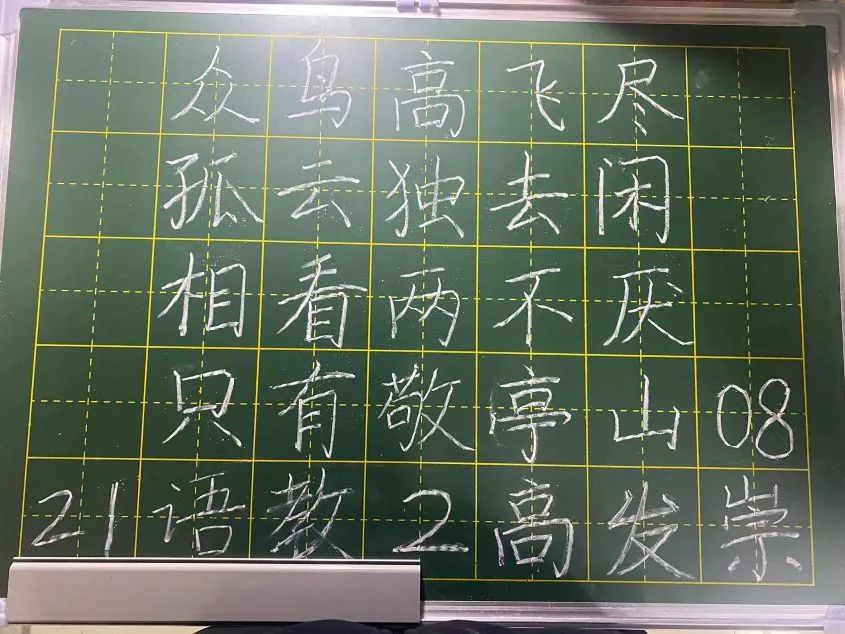 众鸟高飞尽
孤云独去闲
相看两不厌
只有敬亭山08
21语教2高发崇